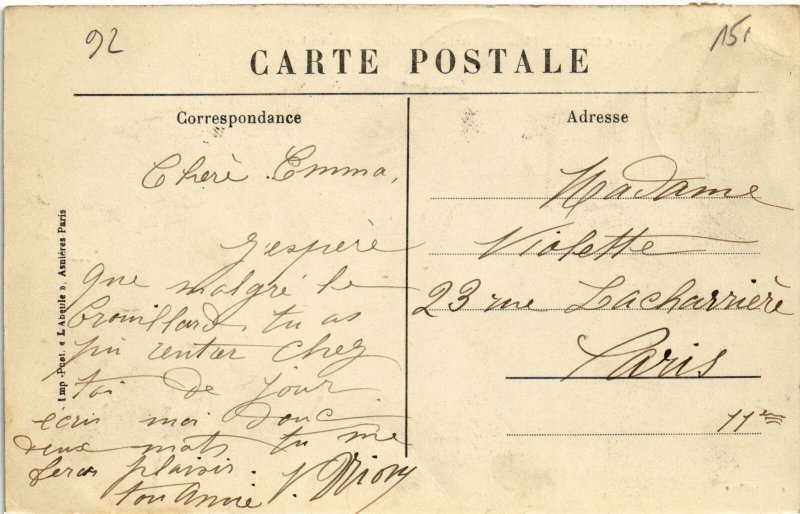 92
151
CARTE POSTALE
Correspondance
Adresse
Chère Emma,
j'espère
que malgré le
brouillard, tu as
pu rentrer chez
toi de jour
écris moi donc
deux mots tu me
feras plaisir.
ton Amie J.
Madame
Violette
23 rue Lacharrière
Paris
11e
Imp.-Post. « L'Abeille », Asnières Paris